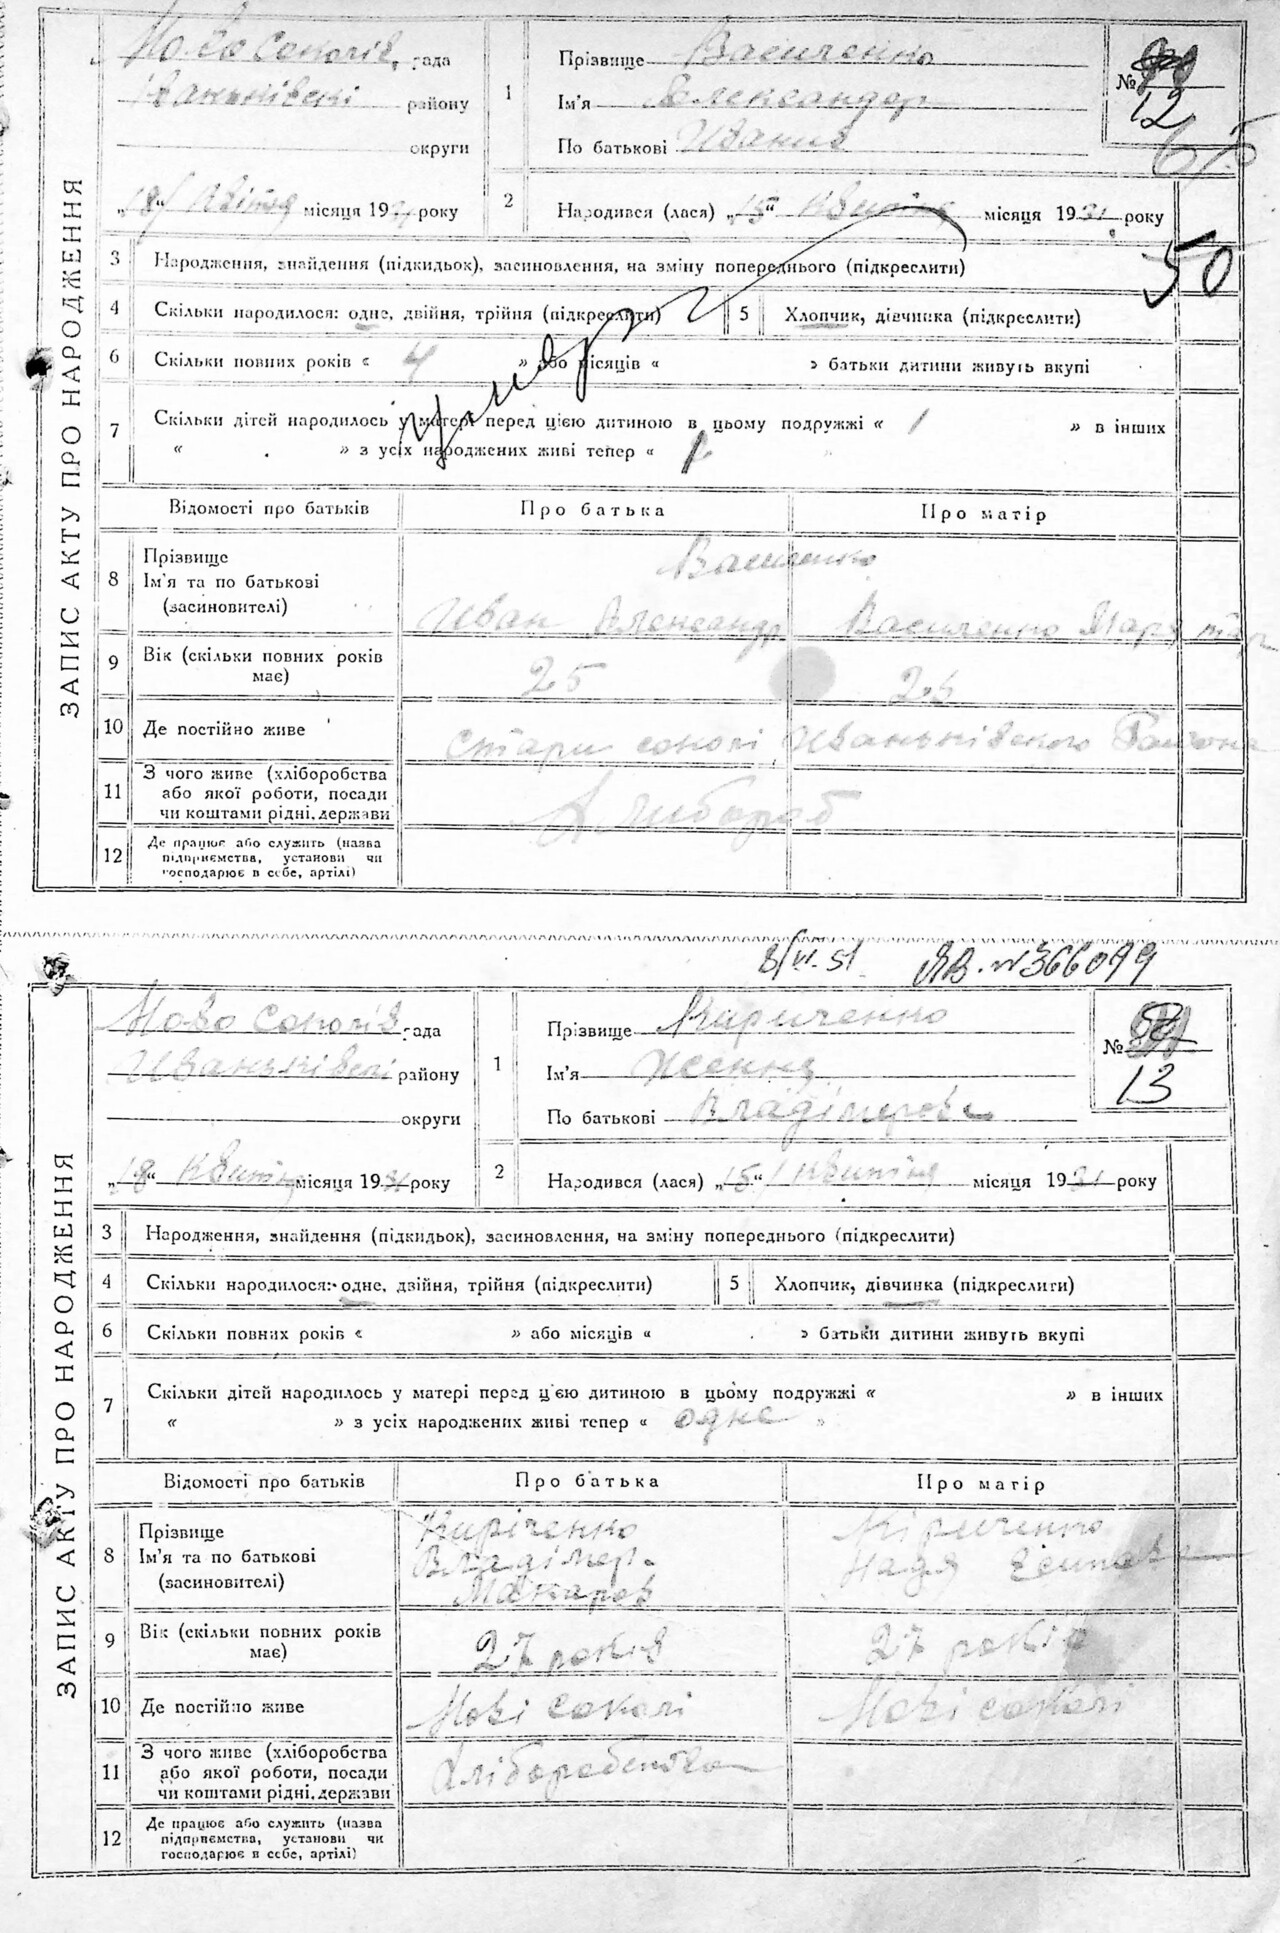 ЗАПИС АКТУ ПРО НАРОДЖЕННЯ
Ново Соколів. рада
Іваньківскі району
округи
„18“ Квітня місяця 1931 року
1
Прізвище Василенко
Ім'я Александер
По батькові Иванив
№
12
2
Народився (лася) „15“ Квитня місяця 1931 року
50
3 Народження, знайдення (підкидьок), засиновлення, на зміну попереднього (підкреслити)
4 Скільки народилося: одне, двійня, трійня (підкреслити)
5 Хлопчик, дівчинка (підкреслити)
6 Скільки повних років « 4 » або місяців « » батьки дитини живуть вкупі
7 Скільки дітей народилось у матері перед цією дитиною в цьому подружжі « 1 » в інших
« » з усіх народжених живі тепер « »
Відомості про батьків Про батька Про матір
8 Прізвище
Ім'я та по батькові
(засиновителі)
Василенко
Иван Александр
Василенко
9 Вік (скільки повних років
має)
25
10 Де постійно живе
Стари соколі Иваньківского Району
11 З чого живе (хліборобства
або якої роботи, посади
чи коштами рідні, держави
Хлибороб
12 Де працює або служить (назва
підприємства, установи чи
господарює в себе, артілі)
8/VI.51 ЯВ. № 366099
ЗАПИС АКТУ ПРО НАРОДЖЕННЯ
Ново Соколів рада
Иваньківскі району
округи
„18“ Квитня місяця 1931 року
1
Прізвище Кириченко
Ім'я
По батькові Владімерова
№
13
2
Народився (лася) „15“ Квитня місяця 1931 року
3 Народження, знайдення (підкидьок), засиновлення, на зміну попереднього (підкреслити)
4 Скільки народилося: одне, двійня, трійня (підкреслити)
5 Хлопчик, дівчинка (підкреслити)
6 Скільки повних років « » або місяців « » батьки дитини живуть вкупі
7 Скільки дітей народилось у матері перед цією дитиною в цьому подружжі « » в інших
« » з усіх народжених живі тепер « одне »
Відомості про батьків Про батька Про матір
8 Прізвище
Ім'я та по батькові
(засиновителі)
Киріченко
Владімер.
Макаров
Кіриченко
Надя
9 Вік (скільки повних років
має)
27 років
27 років
10 Де постійно живе
Нові соколі
Нові соколі
11 З чого живе (хліборобства
або якої роботи, посади
чи коштами рідні, держави
Хліборобство
12 Де працює або служить (назва
підприємства, установи чи
господарює в себе, артілі)